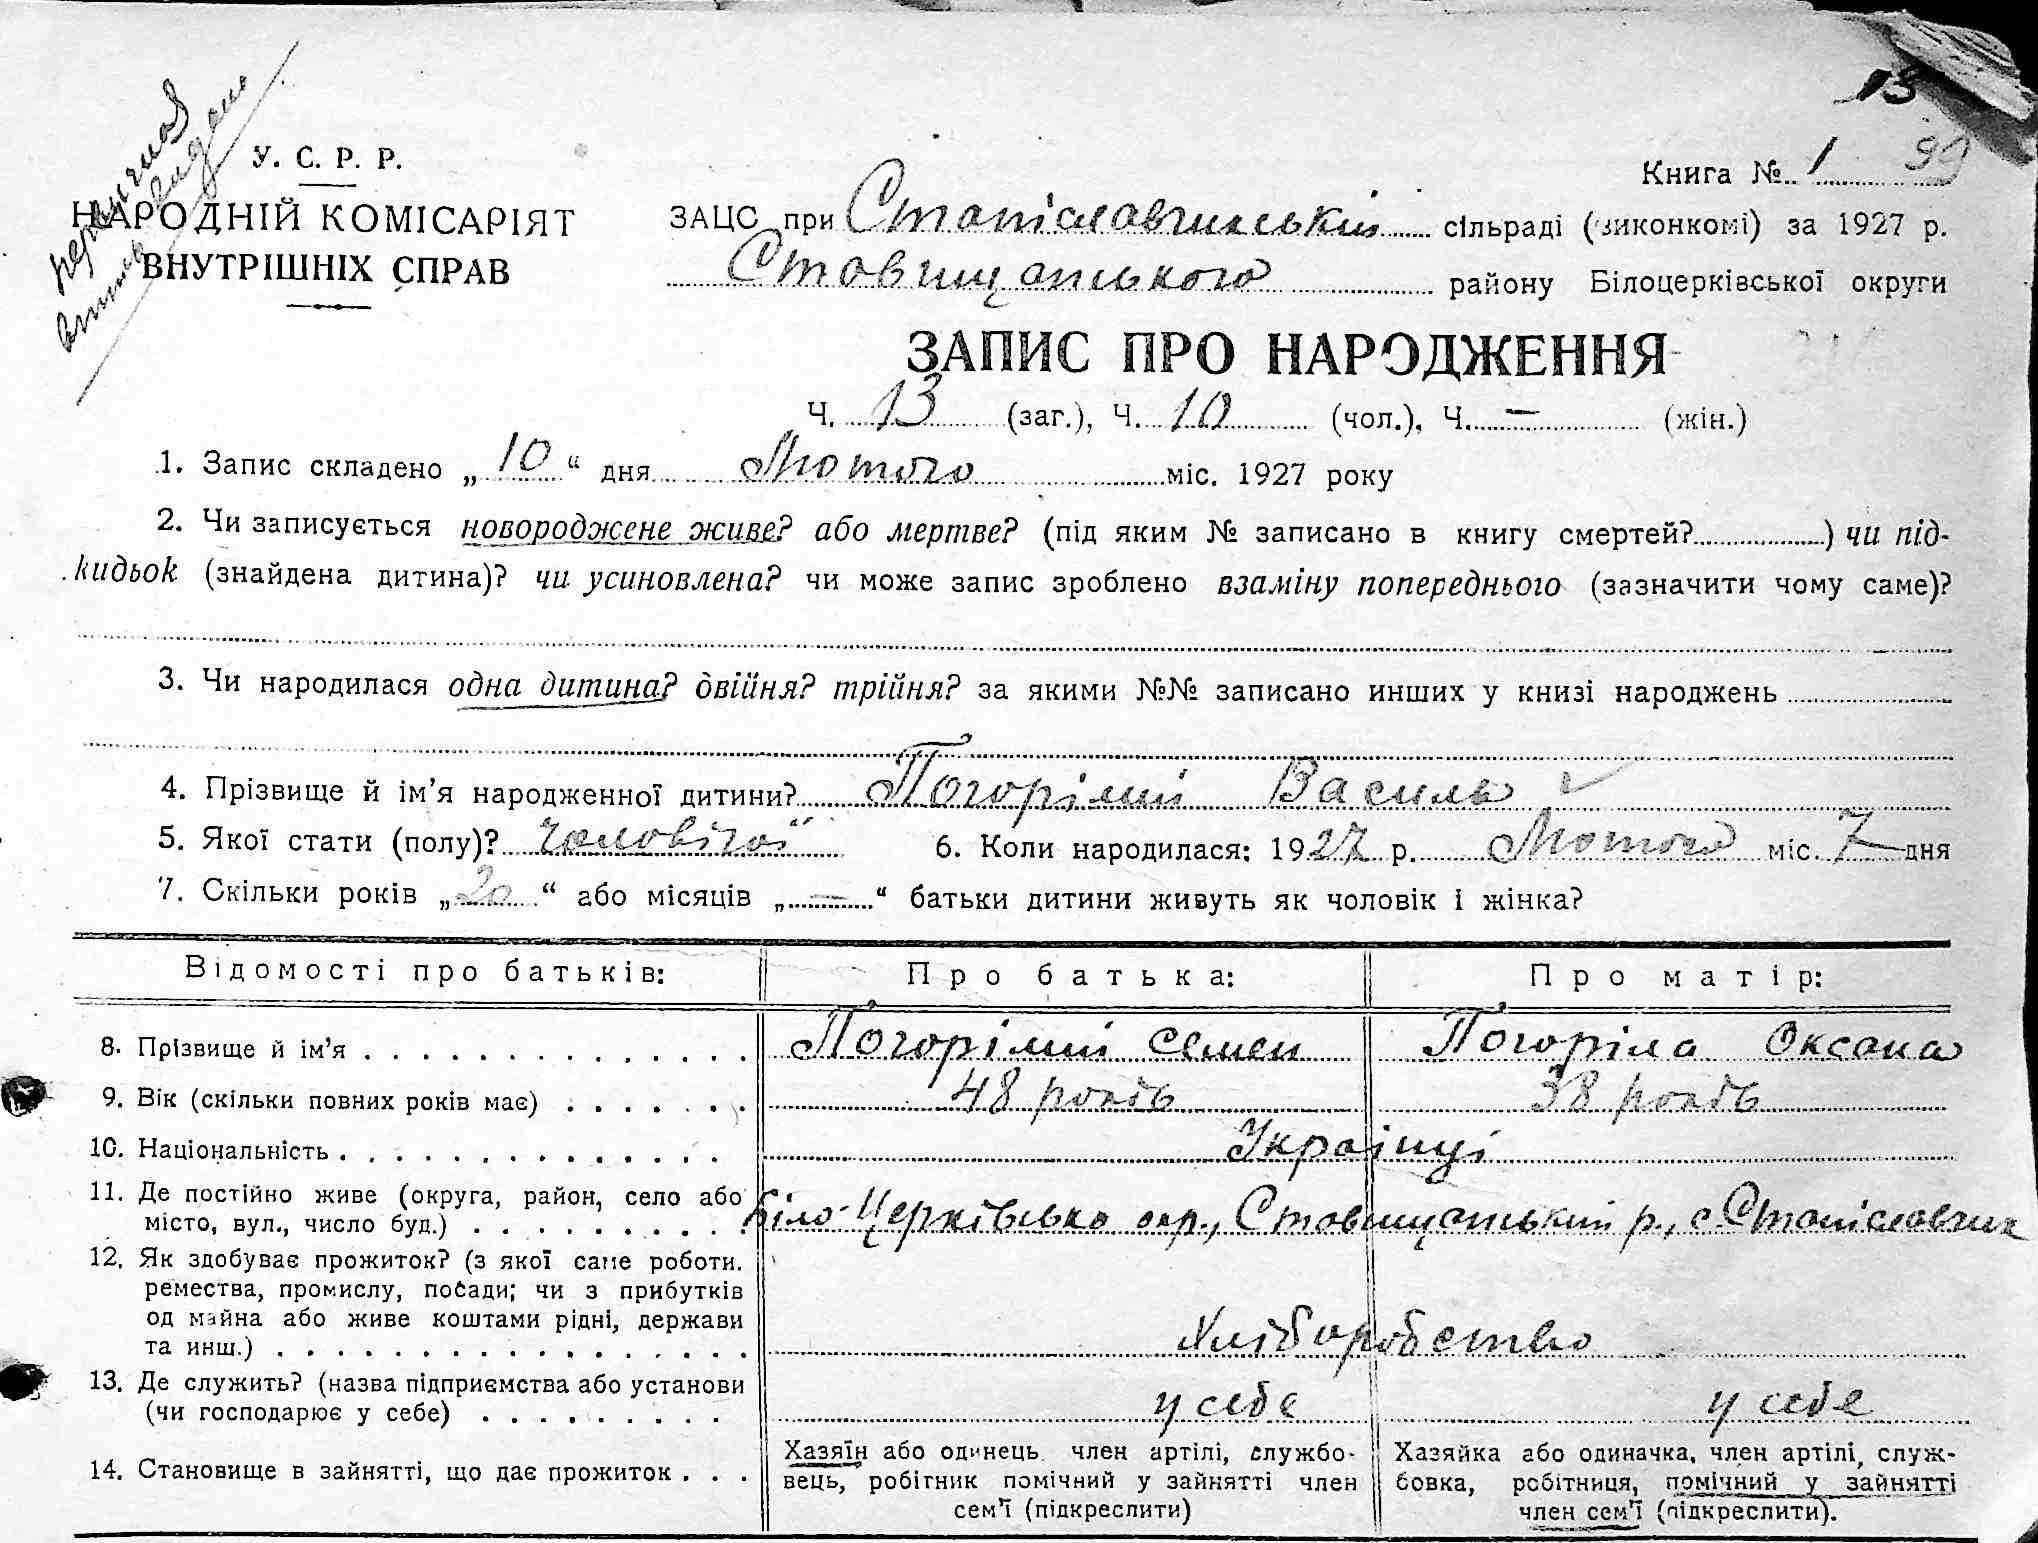 13
У. С. Р. Р.
Книга № 1 99
НАРОДНІЙ КОМІСАРІЯТ
ЗАЦС при Станіславчинській сільраді (виконкомі) за 1927 р.
ВНУТРІШНІХ СПРАВ
Ставищанського району Білоцерківської округи
ЗАПИС ПРО НАРОДЖЕННЯ
Ч. 13 (заг.), Ч. 10 (чол.), Ч. — (жін.)
1. Запис складено „ 10 “ дня Лютого міс. 1927 року
2. Чи записується новороджене живе? або мертве? (під яким № записано в книгу смертей? ) чи під-
кидьок (знайдена дитина)? чи усиновлена? чи може запис зроблено взаміну попереднього (зазначити чому саме)?
3. Чи народилася одна дитина? двійня? трійня? за якими №№ записано инших у книзі народжень
4. Прізвище й ім’я народженної дитини? Погорілий Василь
5. Якої стати (полу)? чоловічої 6. Коли народилася: 1927 р. Лютого міс. 7 дня
7. Скільки років „ 20 “ або місяців „ — “ батьки дитини живуть як чоловік і жінка?
Відомості про батьків: Про батька: Про матір:
8. Прізвище й ім’я Погорілий Семен Погоріла Оксана
9. Вік (скільки повних років має) 48 років 38 років
10. Національність Українці
11. Де постійно живе (округа, район, село або
місто, вул., число буд.) Біло-Церківська окр., Ставищанський р., с. Станіславчик
12. Як здобуває прожиток? (з якої саме роботи.
ремества, промислу, посади; чи з прибутків
од майна або живе коштами рідні, держави
та инш.) Хліборобство
13. Де служить? (назва підприємства або установи
(чи господарює у себе) у себе у себе
14. Становище в зайнятті, що дає прожиток
Хазяїн або одинець член артілі, службо-
вець, робітник помічний у зайнятті член
сем’ї (підкреслити)
Хазяйка або одиначка, член артілі, служ-
бовка, робітниця, помічний у зайнятті
член сем’ї (підкреслити).